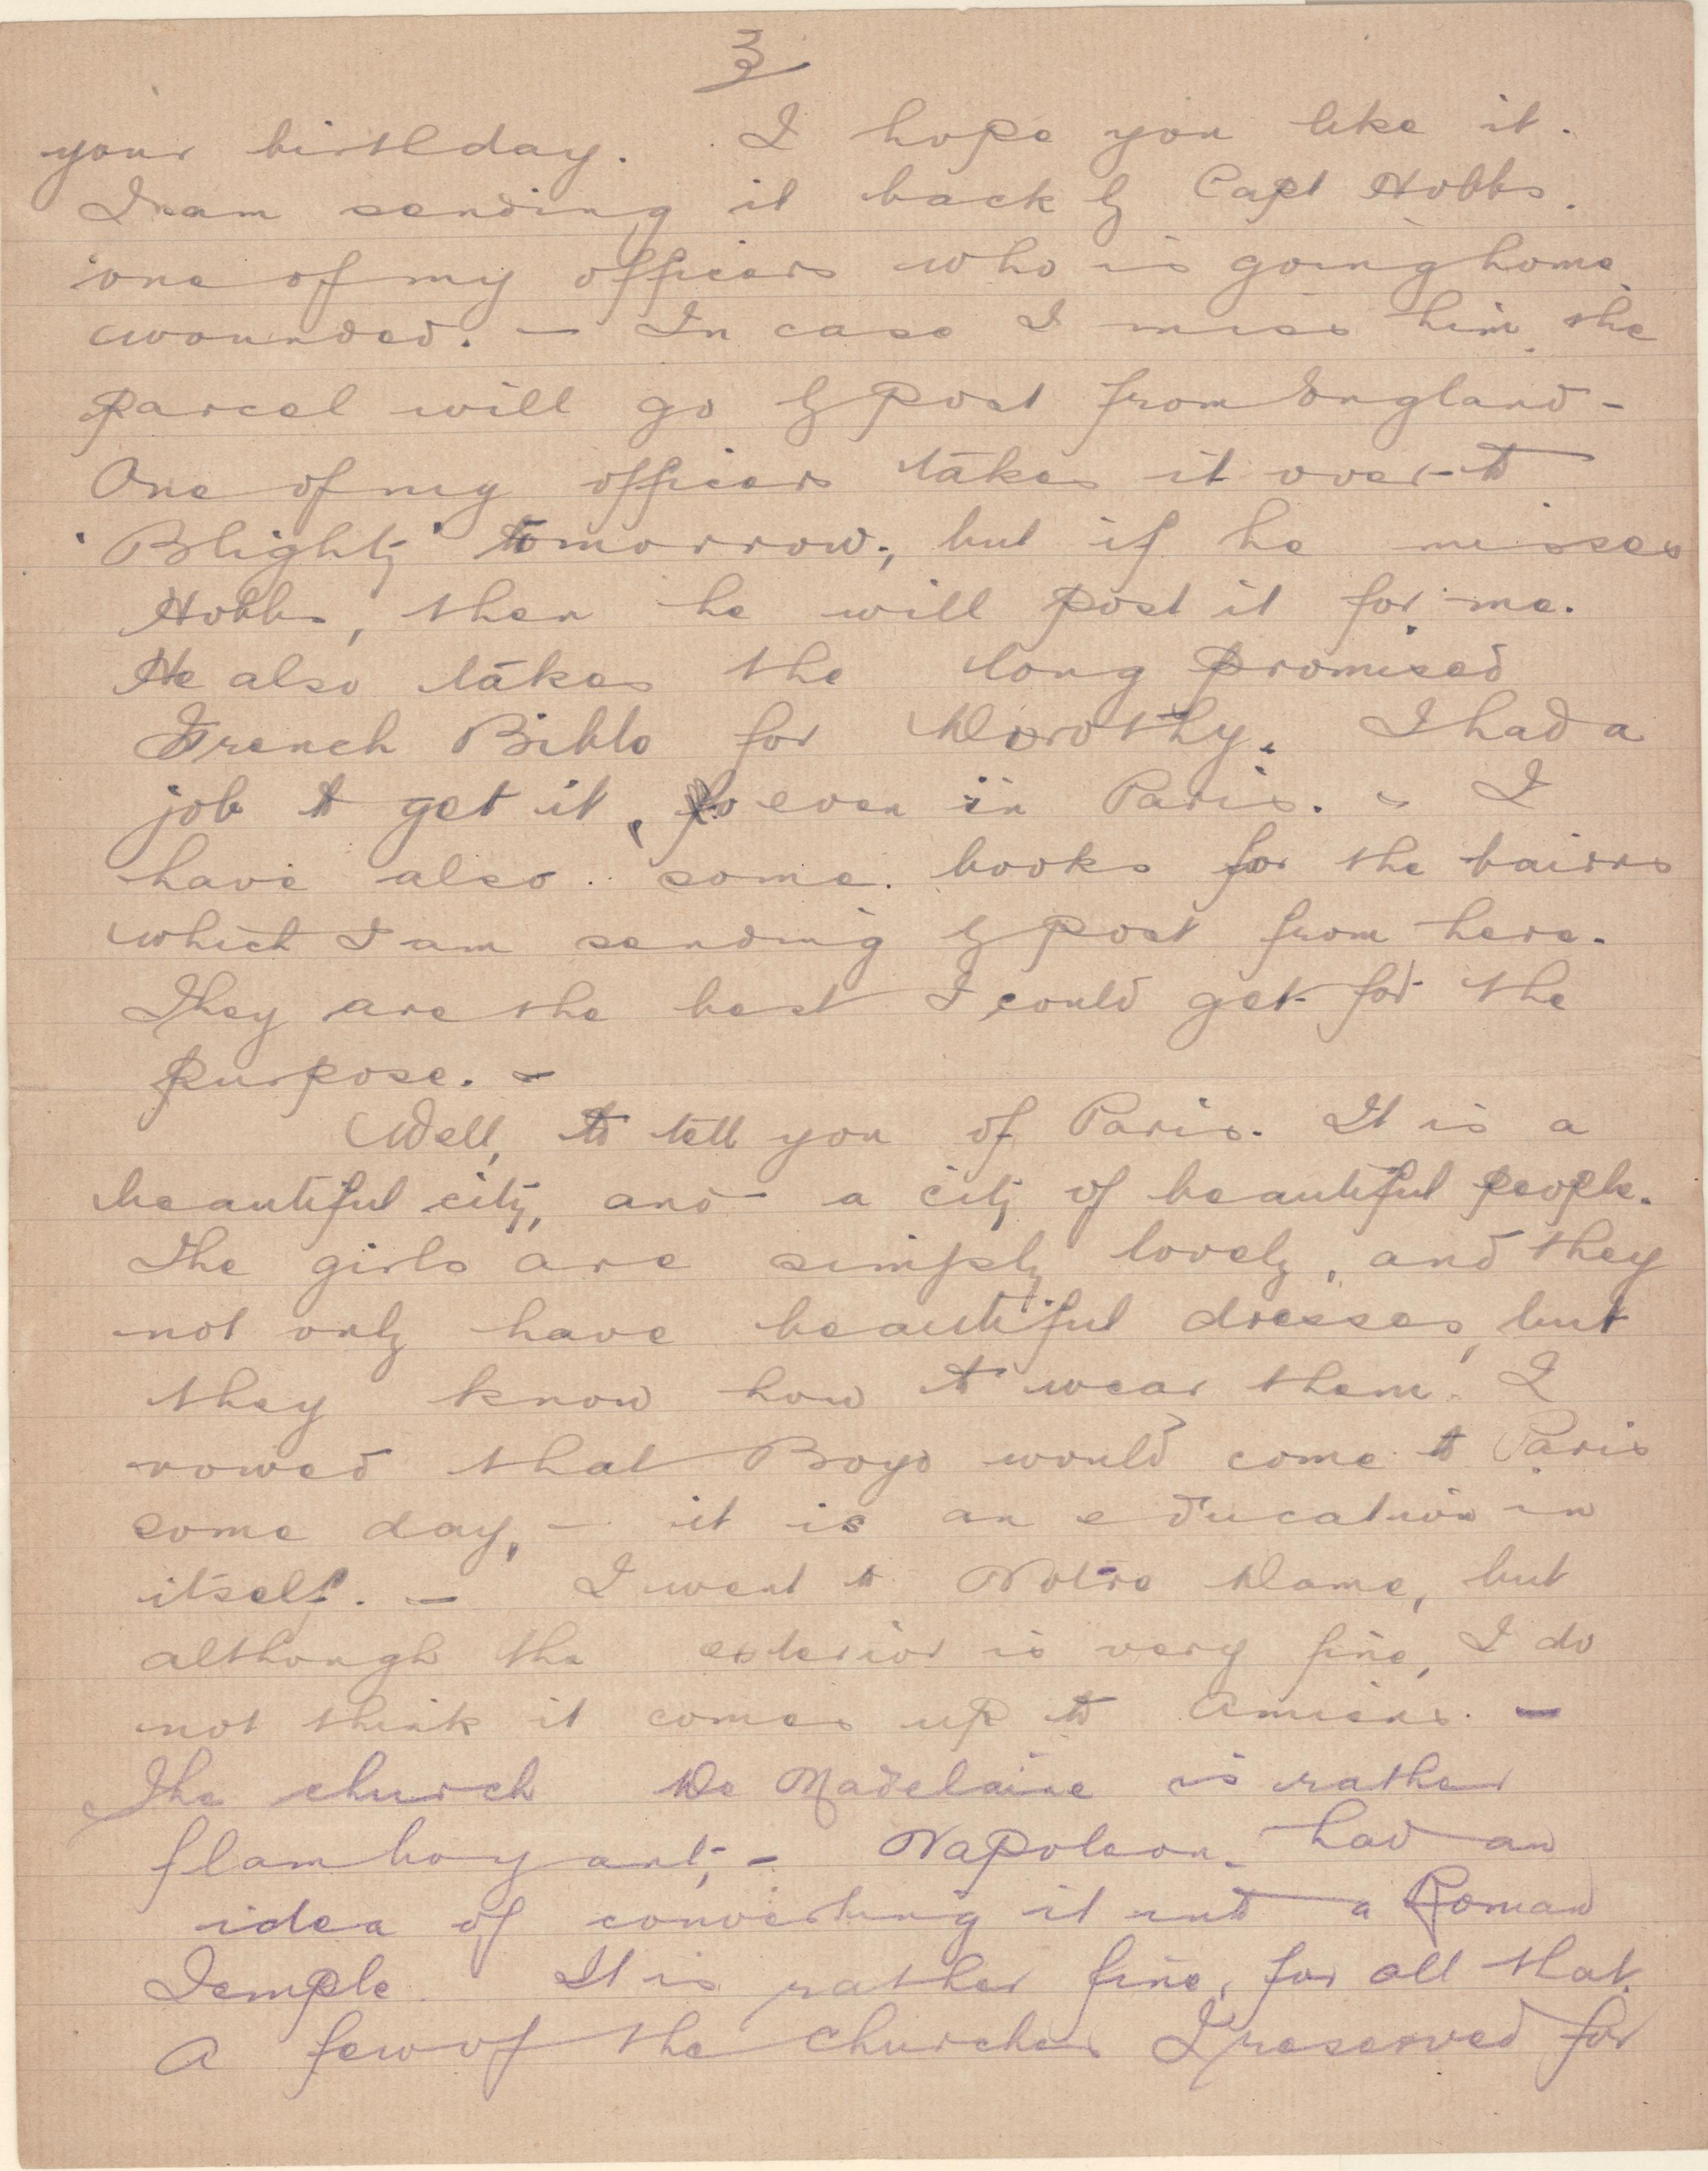 3
your birthday. I hope you like it.
I am sending it back by Capt Hobbs.
one of my officers who is going home
wounded. – In case I miss him, the
parcel will go by post from England –
One of my officers takes it over to
'Blighty' tomorrow; but if he misses
Hobbs, then he will post it for me.
He also takes the long promised
French Bible for Dorothy. I had a
job to get it, even in Paris. – I
have also some books for the bairns
which I am sending by post from here.
They are the best I could get for the
purpose. –
Well, to tell you of Paris. It is a
beautiful city, and a city of beautiful people.
The girls are simply lovely, and they
not only have beautiful dresses, but
they know how to wear them. I
vowed that Boys would come to Paris
some day, – it is an education in
itself. – I went to Notre Dame, but
although the exterior is very fine, I do
not think it comes up to Amiens. –
The church De Madelaine is rather
flamboyant; – Napoleon had an
idea of converting it into a Roman
Temple. It is rather fine, for all that.
A few of the churches I reserved for